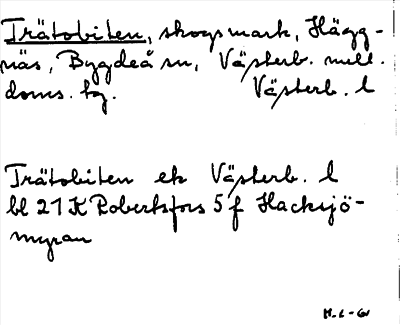 Trätobiten, skogsmark, Hägg-
näs, Bygdeå sn, Västerb. mell.
doms. hg. Västerb. l
Trätobiten ek Västerb. l
bl 21 K Robertsfors 5 f Hacksjö-
myran